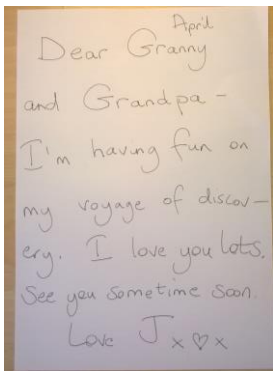 April
Dear Granny
and Grandpa -
I'm having fun on
my voyage of discov-
ery. I love you lots.
See you sometime soon.
Love J x ♡ x